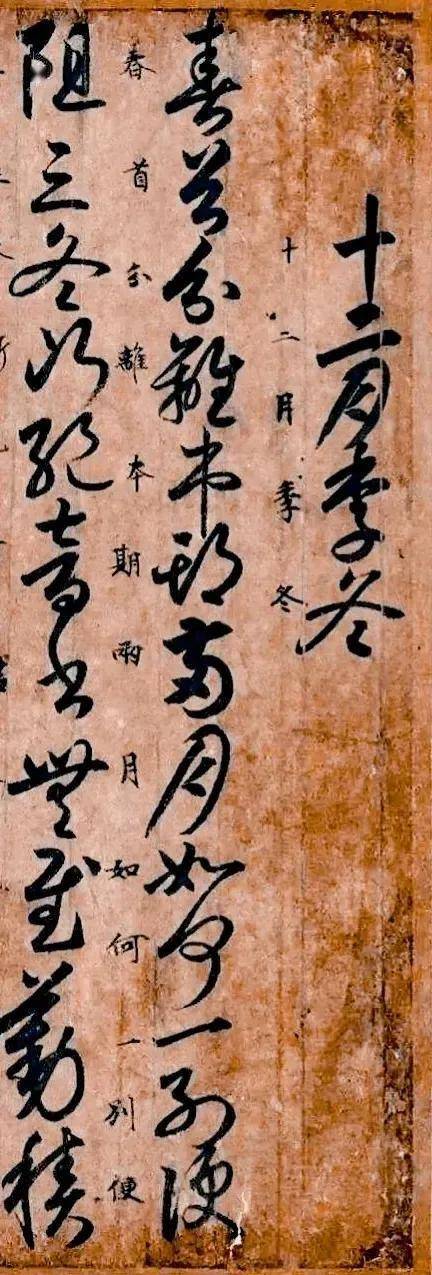 十二月季冬
十二月季冬
春首分離本期兩月如何一別便
春首分離本期兩月如何一別便
阻三冬行絶音書無慰勤積